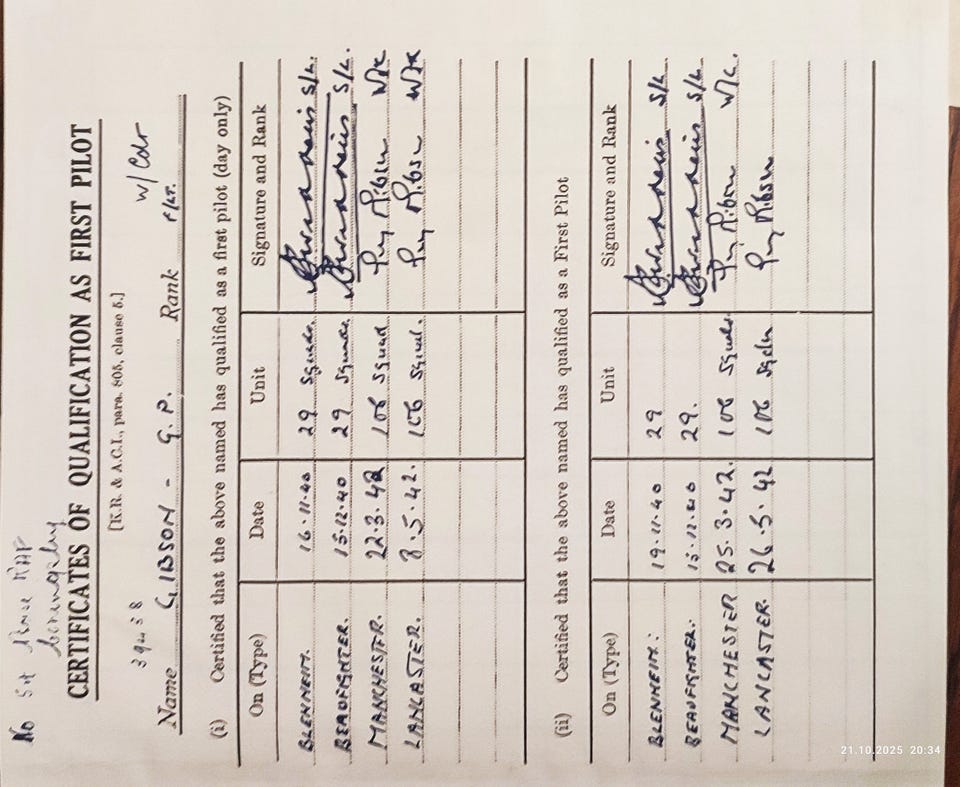 No 54 Base RAF
Coningsby
CERTIFICATES OF QUALIFICATION AS FIRST PILOT
[K.R. & A.C.I., para. 805, clause 5.]
39438 W/Cdr
Name GIBSON - G. P. Rank F/Lt.
(i) Certified that the above named has qualified as a first pilot (day only)
On (Type) Date Unit Signature and Rank
BLENHEIM. 16·11·40 29 Squadn. S/L.
BEAUFIGHTER. 15·12·40 29 Squadn S/L.
MANCHESTER. 22·3·42 106 Squad Guy Gibson W/C
LANCASTER. 8·5·42. 106 Squad. Guy Gibson W/C
(ii) Certified that the above named has qualified as a First Pilot
On (Type) Date Unit Signature and Rank
BLENHEIM: 19·11·40 29 S/L
BEAUFIGHTER. 29. S/L
MANCHESTER 25·3·42. 106 Squadn Guy Gibson W/C.
LANCASTER. 26·5·42 106 Sqdn Guy Gibson
21.10.2025 20:34